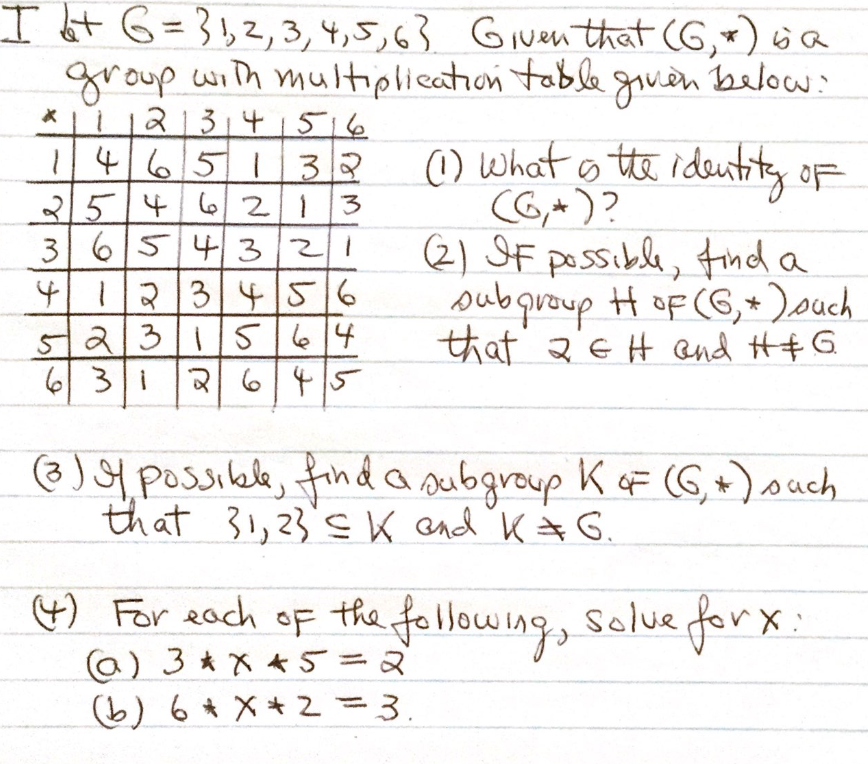 I let G = {1, 2, 3, 4, 5, 6}. Given that (G, *) is a
group with multiplication table given below:
* | 1 | 2 | 3 | 4 | 5 | 6
1 | 4 | 6 | 5 | 1 | 3 | 2
2 | 5 | 4 | 6 | 2 | 1 | 3
3 | 6 | 5 | 4 | 3 | 2 | 1
4 | 1 | 2 | 3 | 4 | 5 | 6
5 | 2 | 3 | 1 | 5 | 6 | 4
6 | 3 | 1 | 2 | 6 | 4 | 5
(1) What is the identity of
(G, *)?
(2) If possible, find a
subgroup H of (G, *) such
that 2 ∈ H and H ≠ G.
(3) If possible, find a subgroup K of (G, *) such
that {1, 2} ⊆ K and K ≠ G.
(4) For each of the following, solve for x:
(a) 3 * x * 5 = 2
(b) 6 * x * 2 = 3.